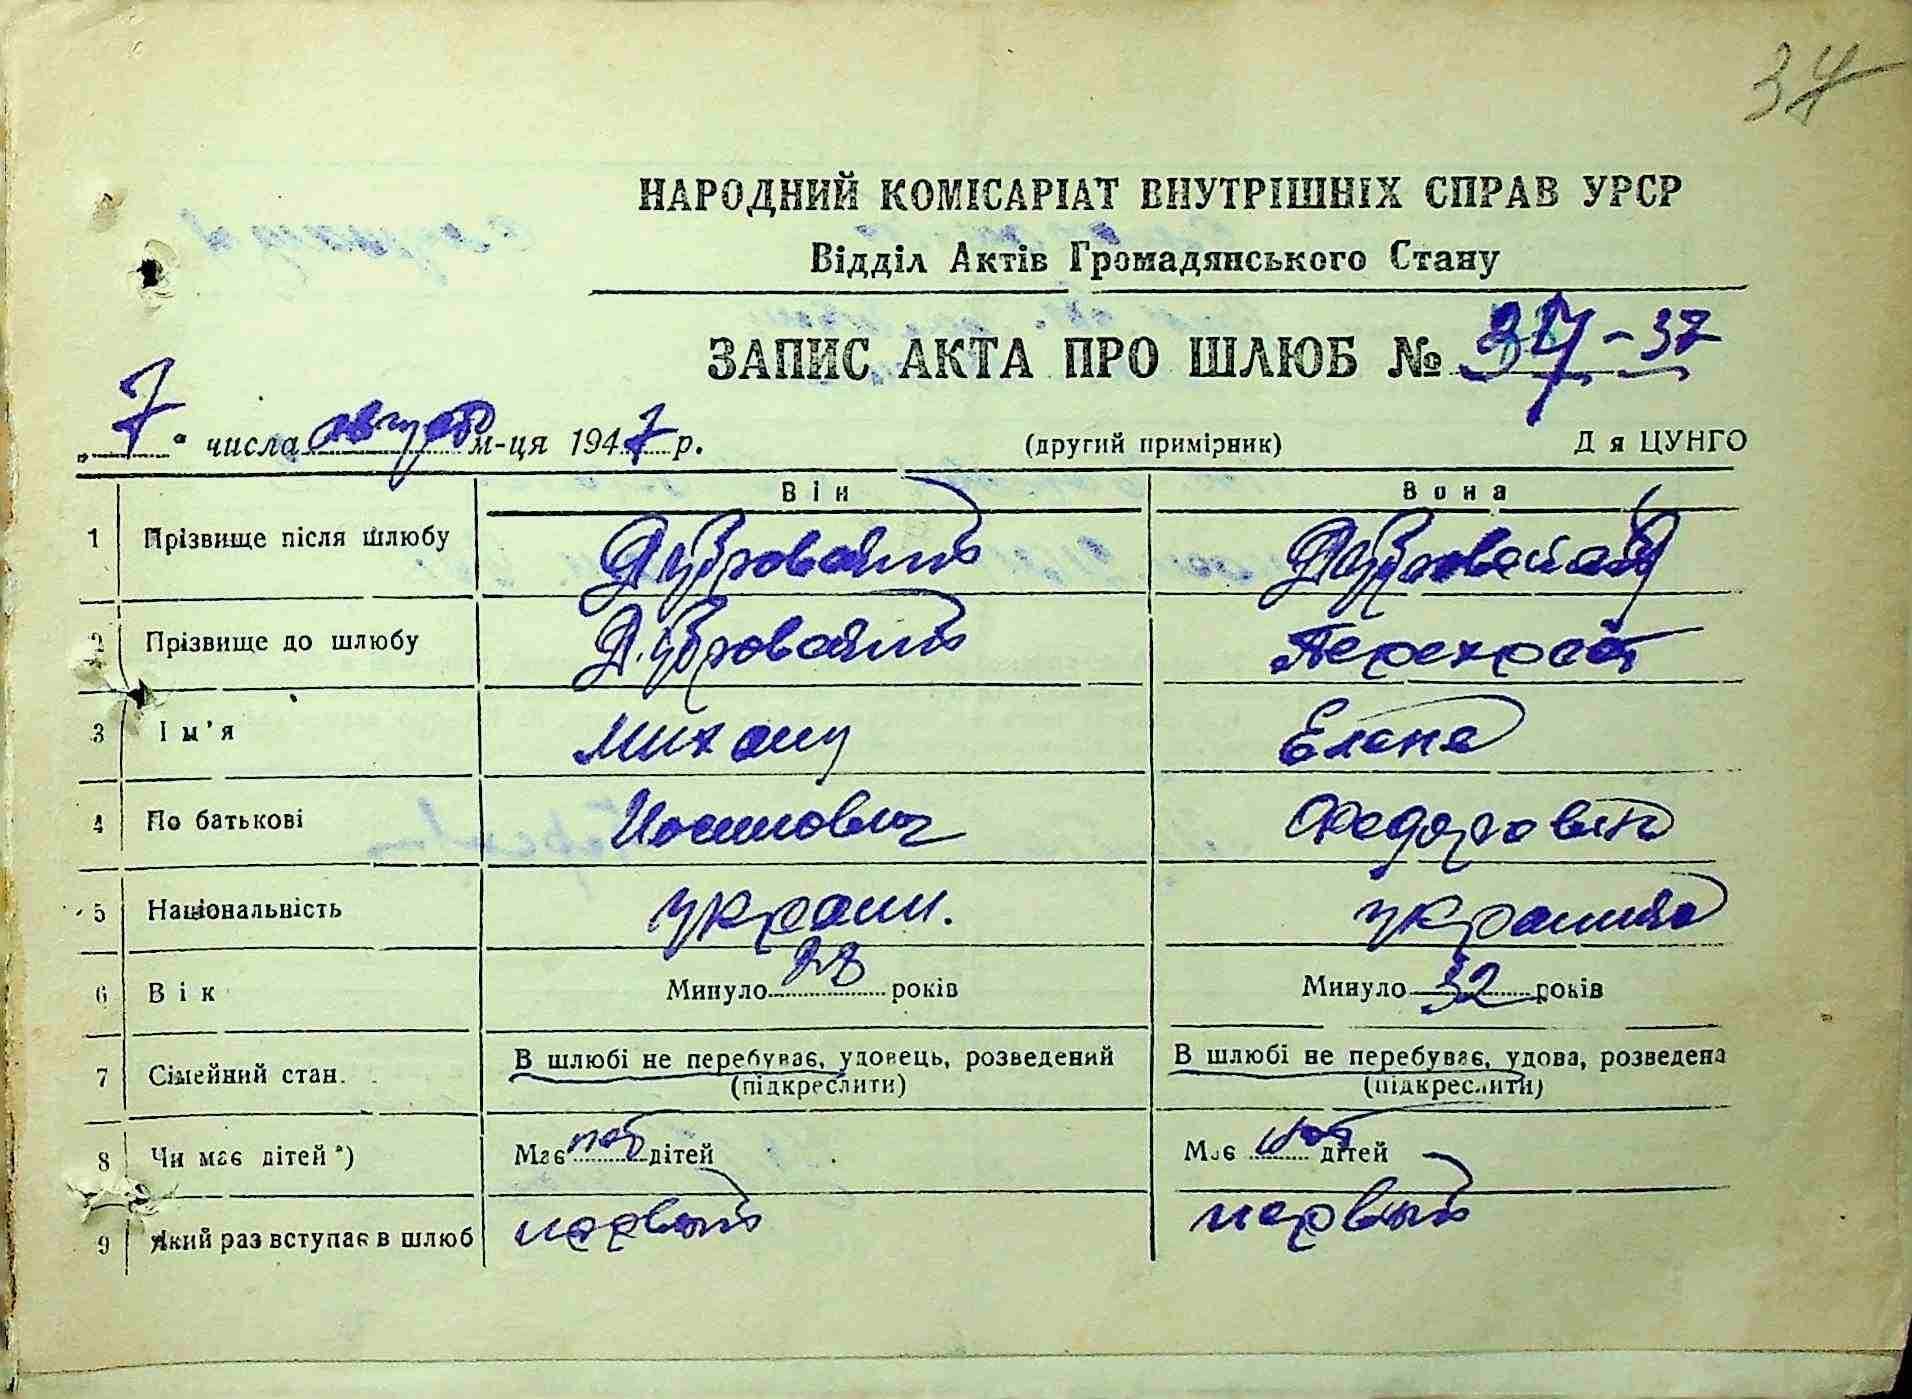 34
НАРОДНИЙ КОМІСАРІАТ ВНУТРІШНІХ СПРАВ УРСР
Відділ Актів Громадянського Стану
ЗАПИС АКТА ПРО ШЛЮБ № 37-37
„7“ числа август м-ця 1947 р. (другий примірник) Д я ЦУНГО
Він Вона
1 Прізвище після шлюбу
2 Прізвище до шлюбу Перехрест
3 Ім'я Михаил Елена
4 По батькові Иосипович Федоровна
5 Національність украин. украинка
6 Вік Минуло 28 років Минуло 32 років
7 Сімейний стан. В шлюбі не перебуває, удовець, розведений В шлюбі не перебуває, удова, розведена
(підкреслити) (підкреслити)
8 Чи має дітей*) Має нет дітей Має нет дітей
9 Який раз вступає в шлюб первый первый